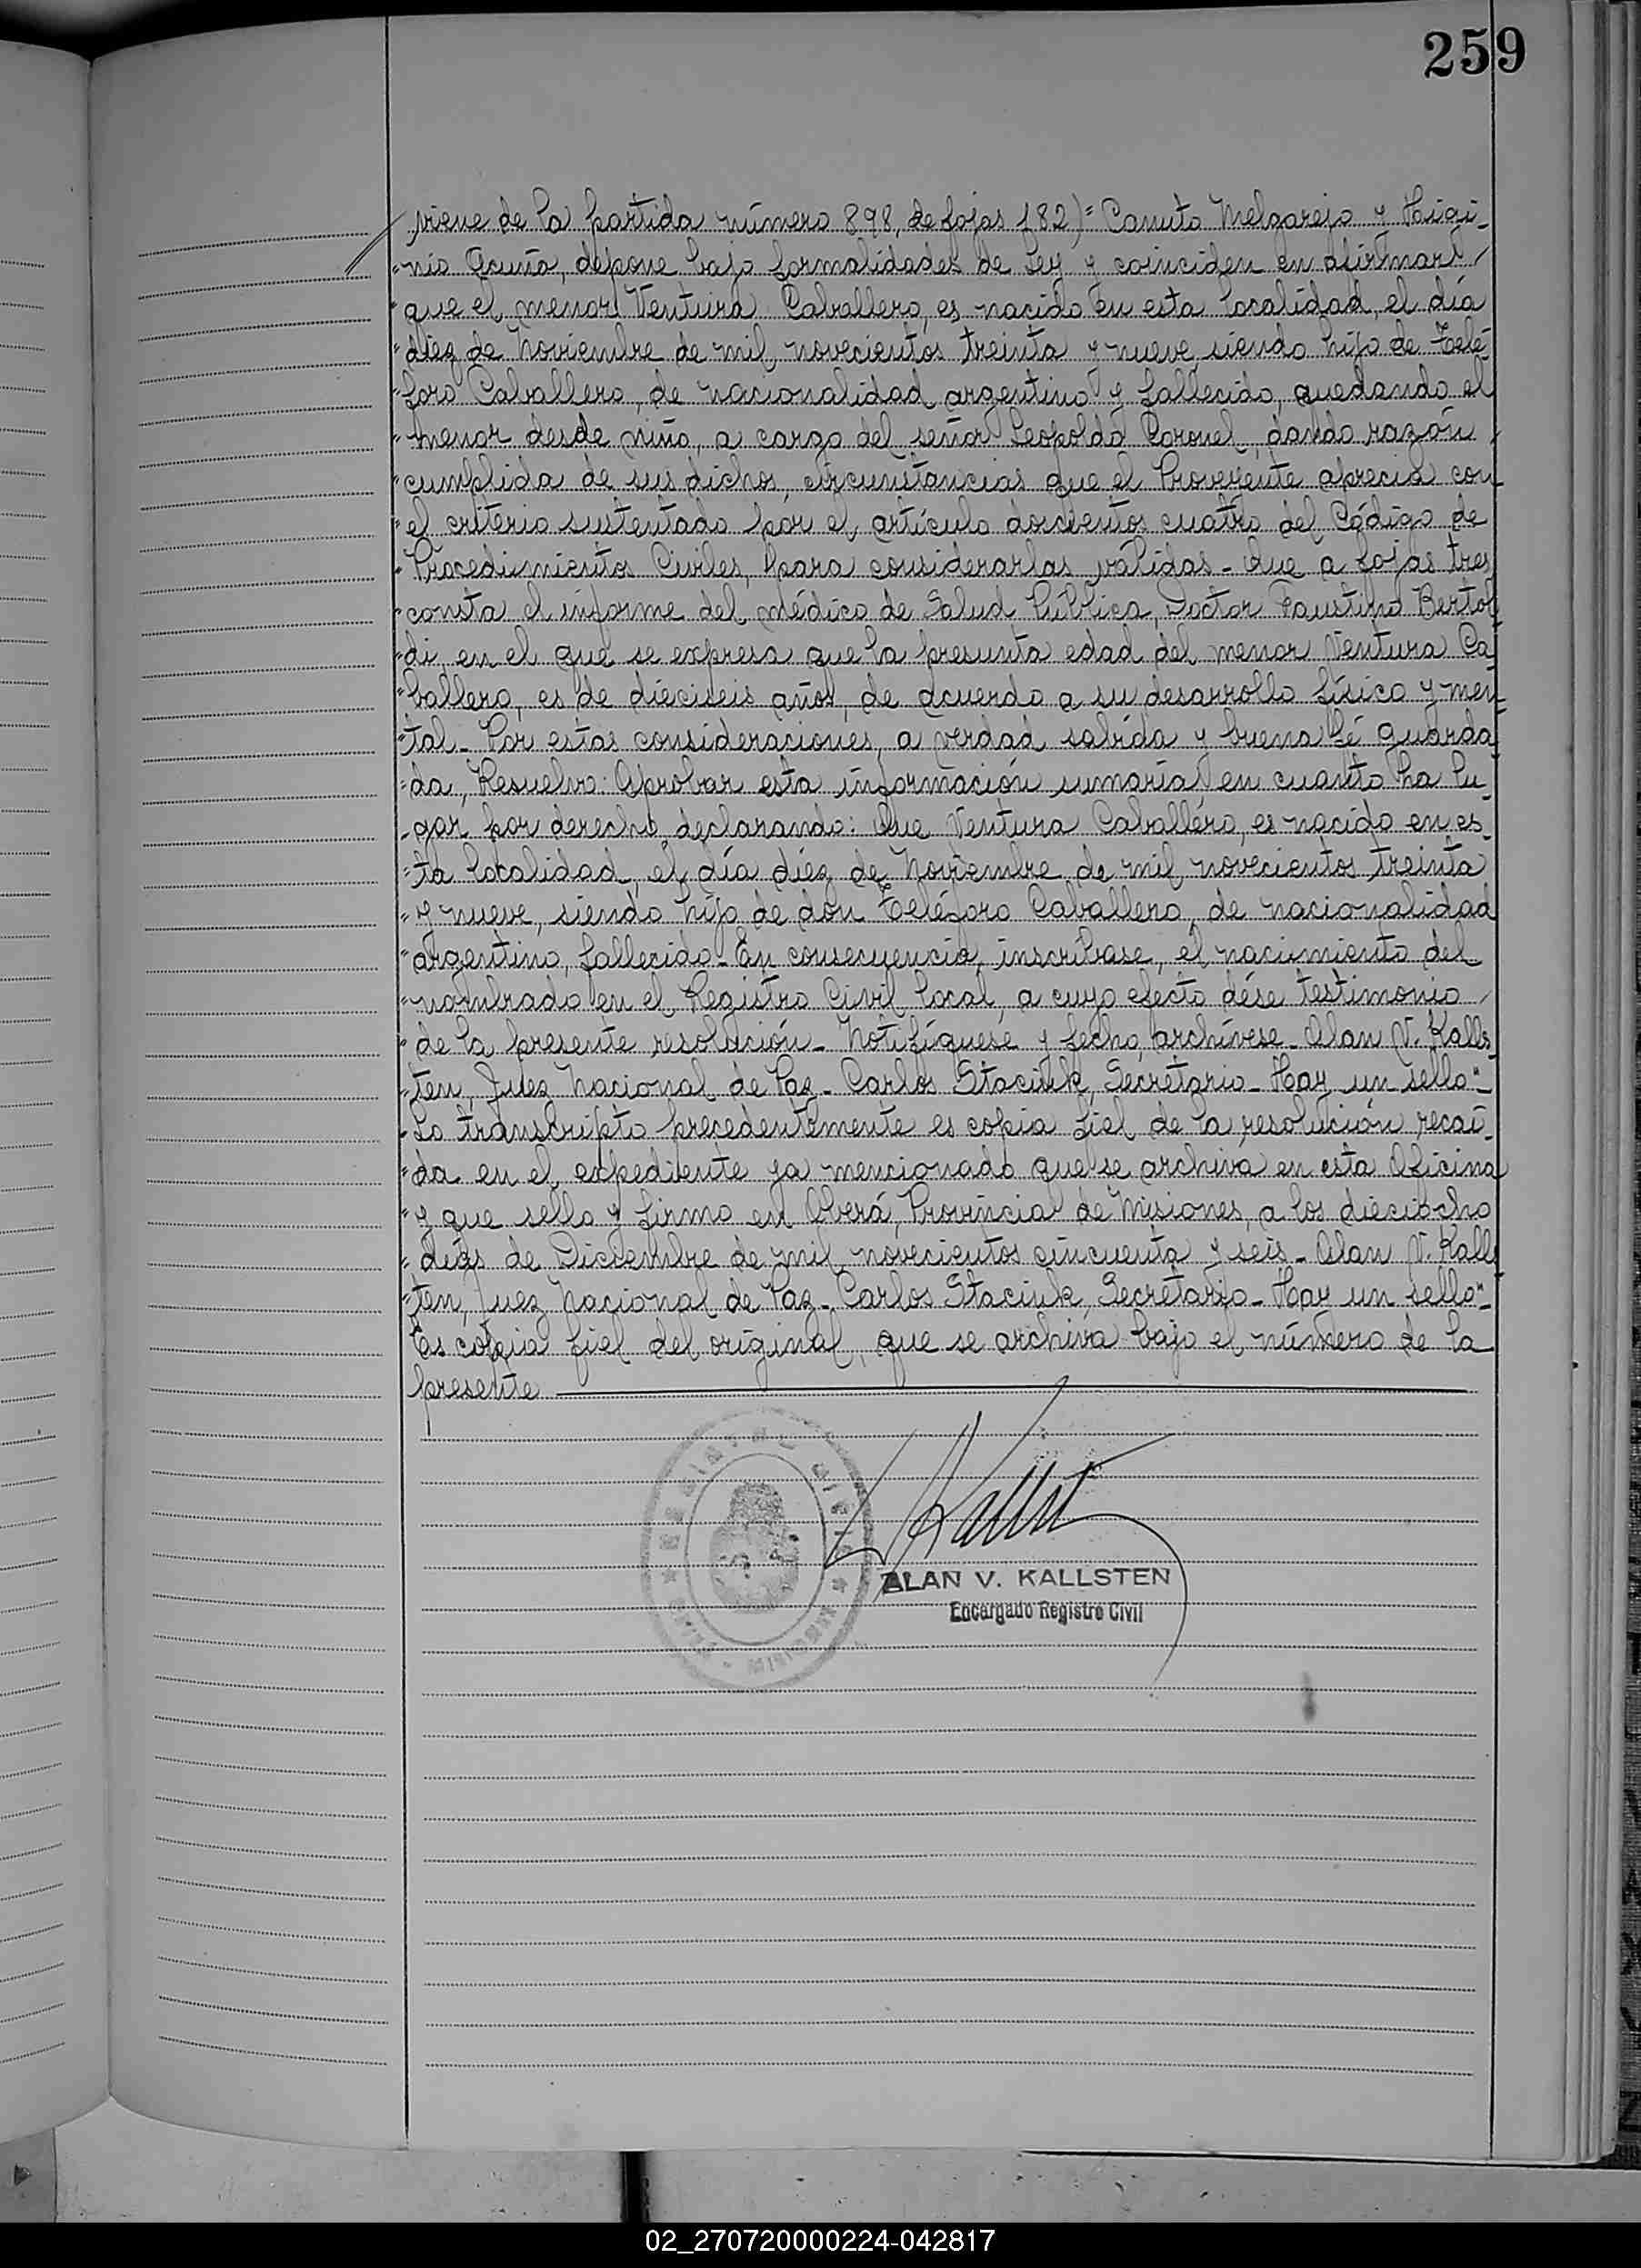 259
viene de la partida número 898, de fojas 182)= Canuto Melgarejo y Higi-
"nio Acuña, depone bajo formalidades de Ley y coinciden en afirmar
"que el menor Ventura Caballero, es nacido en esta localidad, el día
"diez de Noviembre de mil novecientos treinta y nueve, siendo hijo de Telé-
"foro Caballero, de nacionalidad argentino y fallecido, quedando el
"menor desde niño, a cargo del señor Leopoldo Coronel, dando razón
"cumplida de sus dichos, circunstancias que el Proveyente aprecia con
"el criterio sustentado por el, artículo doscientos cuatro del Código de
"Procedimientos Civiles, para considerarlas válidas- Que a fojas tres
"consta el informe del médico de Salud Pública, Doctor Faustino Bertol
"di, en el que se expresa que la presunta edad del menor Ventura Ca
"ballero, es de dieciseis años, de acuerdo a su desarrollo físico y men-
"tal- Por estas consideraciones, a verdad sabida y buena fé guarda
"da, Resuelvo: Aprobar esta información sumaria en cuanto ha lu-
"gar por derecho, declarando: Que Ventura Caballero, es nacido en es-
"ta localidad, el día diez de Noviembre de mil novecientos treinta
"y nueve, siendo hijo de don Teléforo Caballero, de nacionalidad
"argentino, fallecido- En consecuencia, inscríbase, el nacimiento del
"nombrado en el Registro Civil local, a cuyo efecto dése testimonio
"de la presente resolución- Notifíquese y fecho, archívese- Alan V. Kalls
"ten, Juez Nacional de Paz- Carlos Staciuk, Secretario- Hay un sello"-
"Lo transcripto precedentemente es copia fiel de la resolución recaí-
"da en el expediente ya mencionado que se archiva en esta Oficina
"y que sello y firmo en Oberá, Provincia de Misiones, a los dieciocho
"días de Diciembre de mil novecientos cincuenta y seis- Alan V. Kalls
"ten, Juez Nacional de Paz- Carlos Staciuk, Secretario- Hay un sello"-
Es copia fiel del original, que se archiva bajo el número de la
presente
REGISTRO CIVIL
ALAN V. KALLSTEN
Encargado Registro Civil
02_270720000224-042817